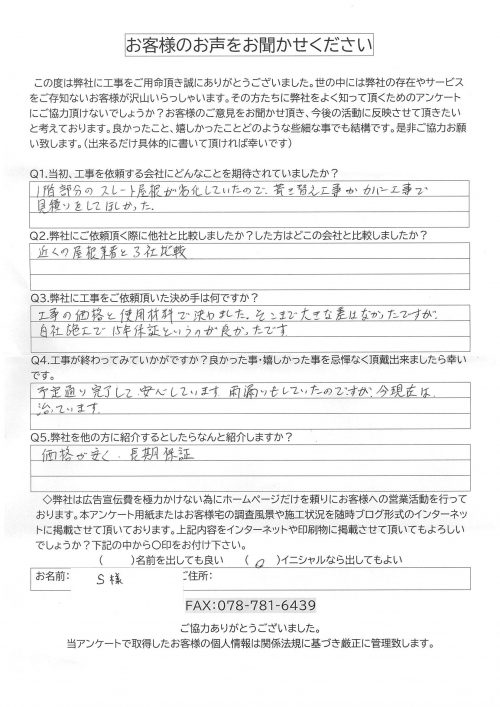 お客様のお声をお聞かせください
この度は弊社に工事をご用命頂き誠にありがとうございました。世の中には弊社の存在やサービス
をご存知ないお客様が沢山いらっしゃいます。その方たちに弊社をよく知って頂くためのアンケート
にご協力頂けないでしょうか？お客様のご意見をお聞かせ頂き、今後の活動に反映させて頂きたい
と考えております。良かったこと、嬉しかったことどのような些細な事でも結構です。是非ご協力お願
い致します。（出来るだけ具体的に書いて頂ければ幸いです）
Q1.当初、工事を依頼する会社にどんなことを期待されていましたか？
1階部分のスレート屋根が劣化していたので、葺き替え工事かカバー工事で
見積りをしてほしかった.
Q2.弊社にご依頼頂く際に他社と比較しましたか？した方はどこの会社と比較しましたか？
近くの屋根業者と3社比較
Q3.弊社に工事をご依頼頂いた決め手は何ですか？
工事の価格と使用材料で決めました。そこまで大きな差はなかったですが、
自社施工で15年保証というのが良かったです
Q4.工事が終わってみていかがですか？良かった事・嬉しかった事を忌憚なく頂戴出来ましたら幸い
です。
予定通り完了して、安心しています 雨漏りもしていたのですが、今現在は、
治っています
Q5.弊社を他の方に紹介するとしたらなんと紹介しますか？
価格が安く、長期保証
◇弊社は広告宣伝費を極力かけない為にホームページだけを頼りにお客様への営業活動を行って
おります。本アンケート用紙またはお客様宅の調査風景や施工状況を随時ブログ形式のインターネッ
トに掲載させて頂いております。上記内容をインターネットや印刷物に掲載させて頂いてもよろしい
でしょうか？下記の中から〇印をお付け下さい。
（　　）名前を出しても良い　（ 〇 ）イニシャルなら出してもよい
お名前： S様 ご住所：
FAX：078-781-6439
ご協力ありがとうございました。
当アンケートで取得したお客様の個人情報は関係法規に基づき厳正に管理致します。